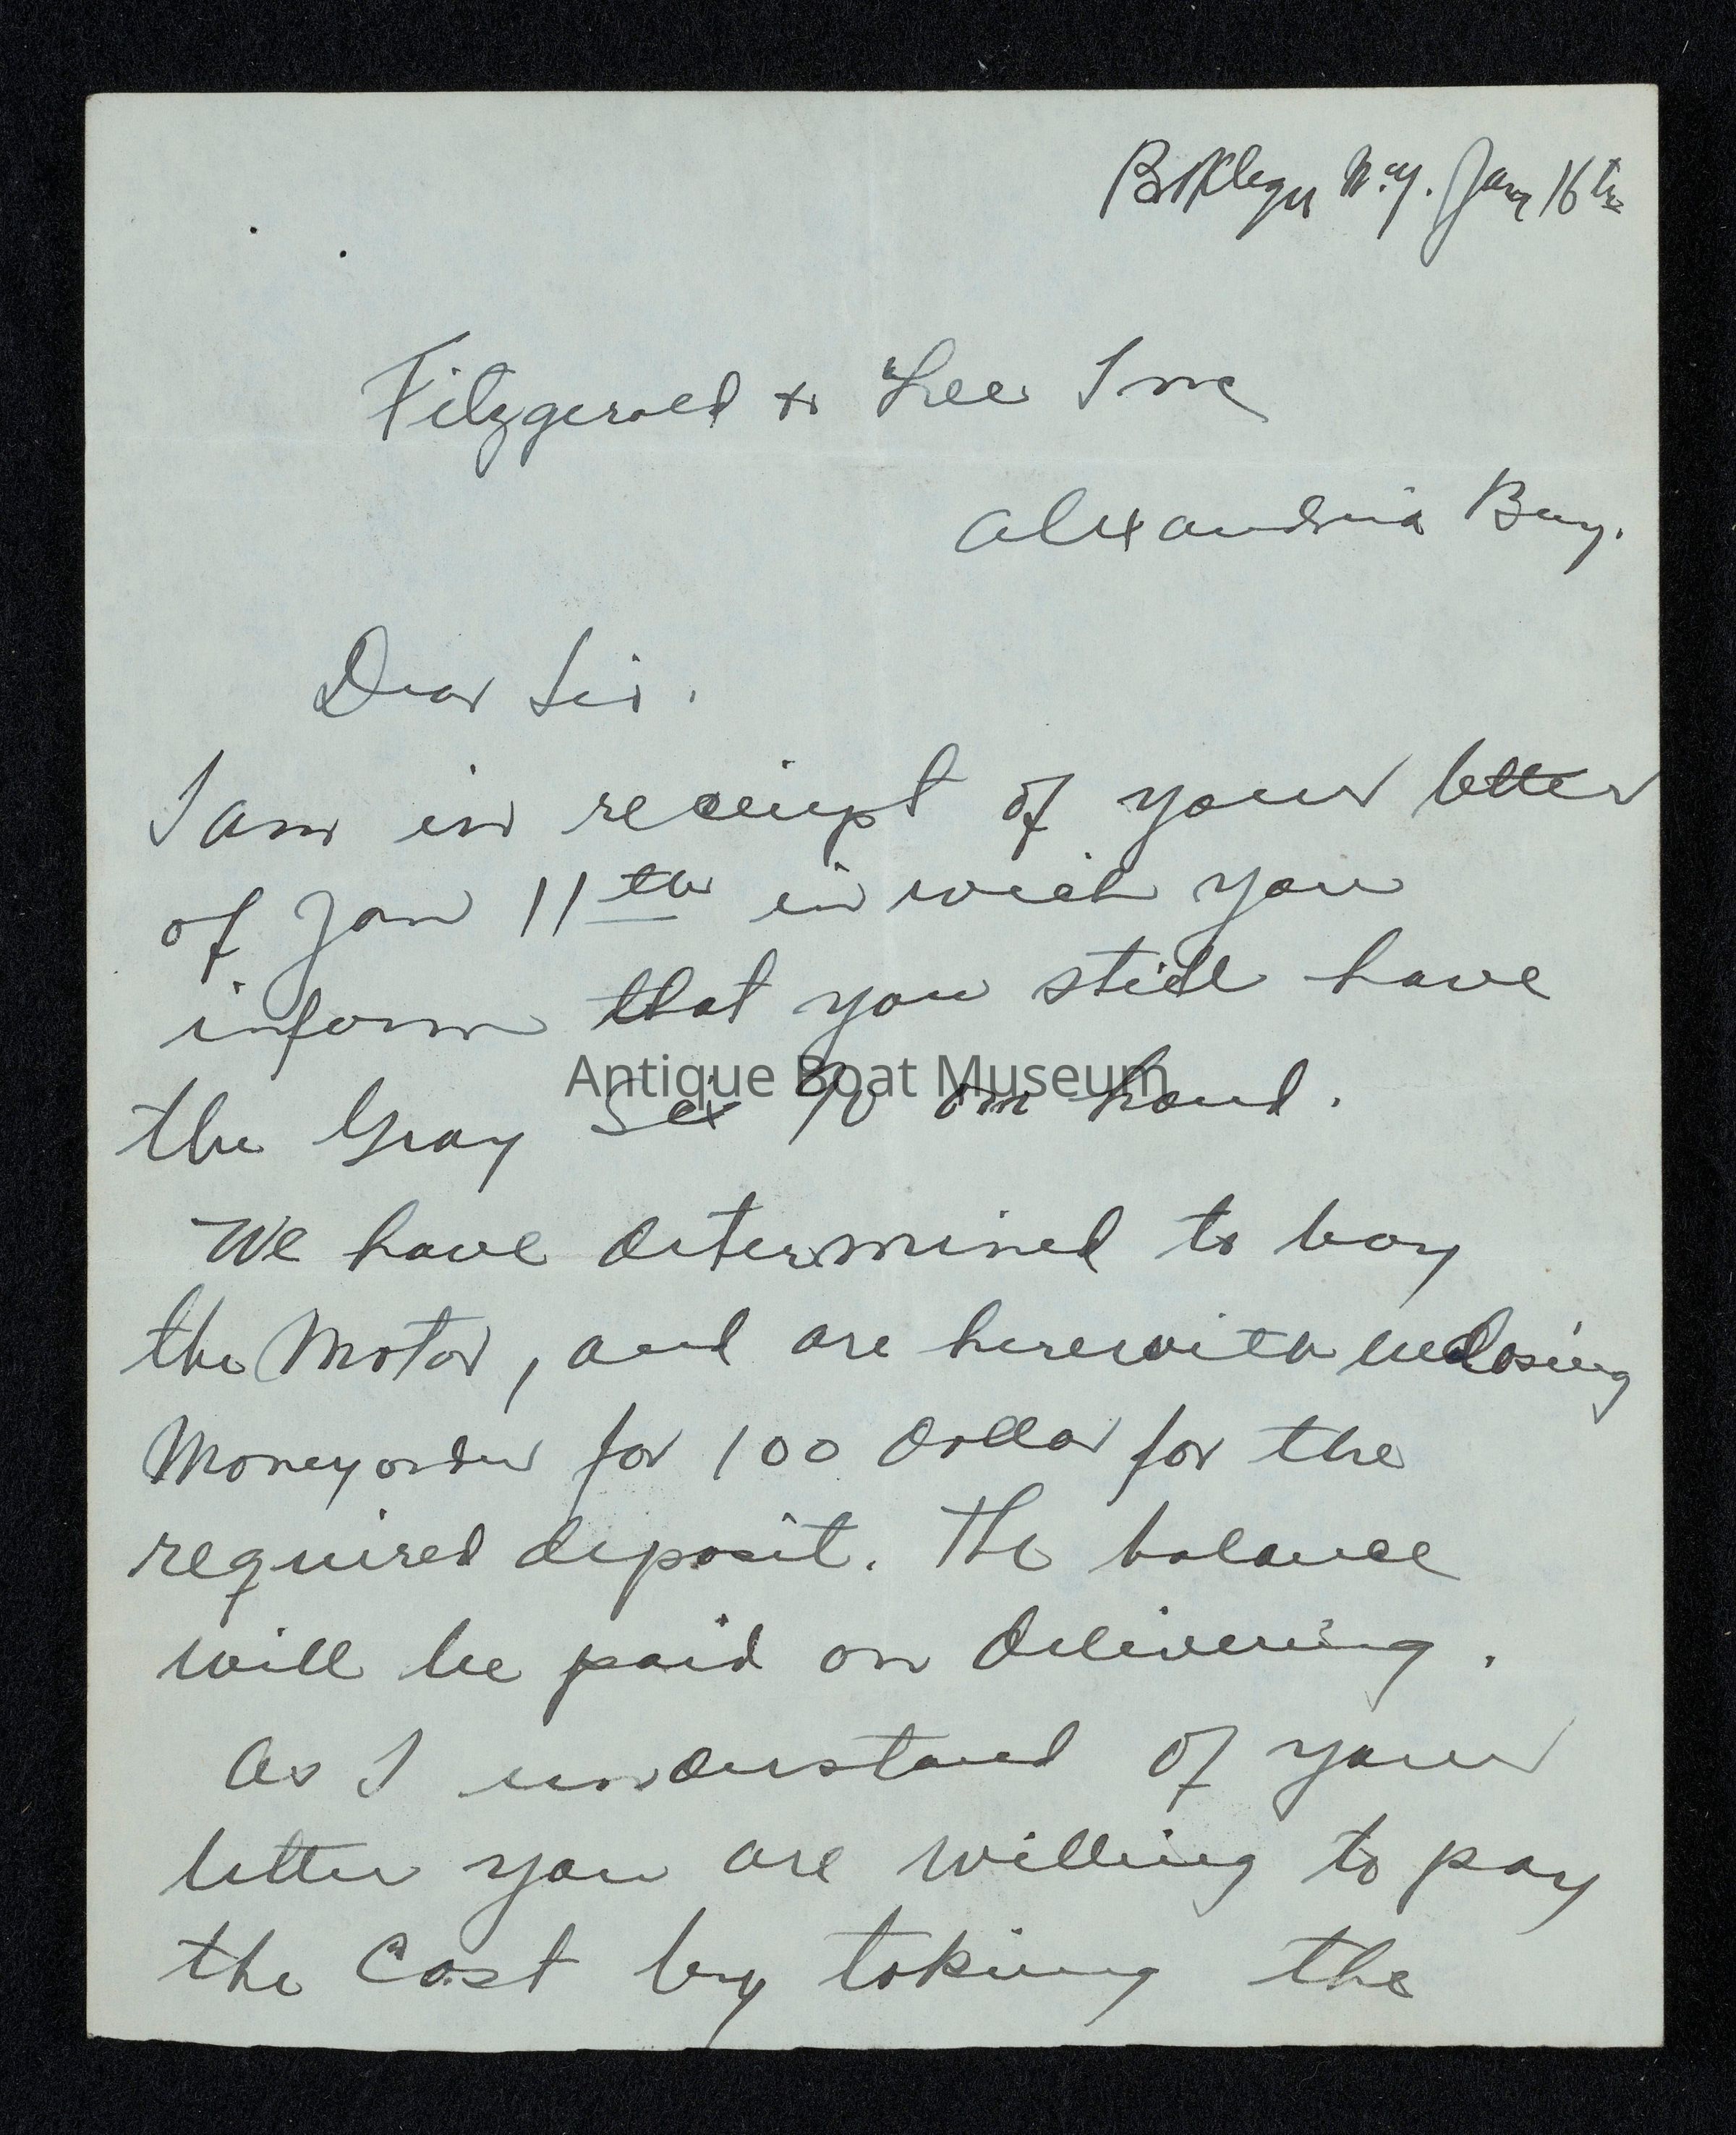 Bklyn N.Y. Jan 16th
Fitzgerald & Lee Inc
Alexandria Bay.
Dear Sir.
I am in receipt of your letter
of Jan 11th in wich you
inform that you still have
Antique Boat Museum
the Gray Six 90 on hand.
We have determined to buy
the Motor, and are herewith enclosing
Moneyorder for 100 Dollar for the
required deposit. The balance
will be paid on delivering.
As I understand of your
letter you are willing to pay
the Cost by toking the